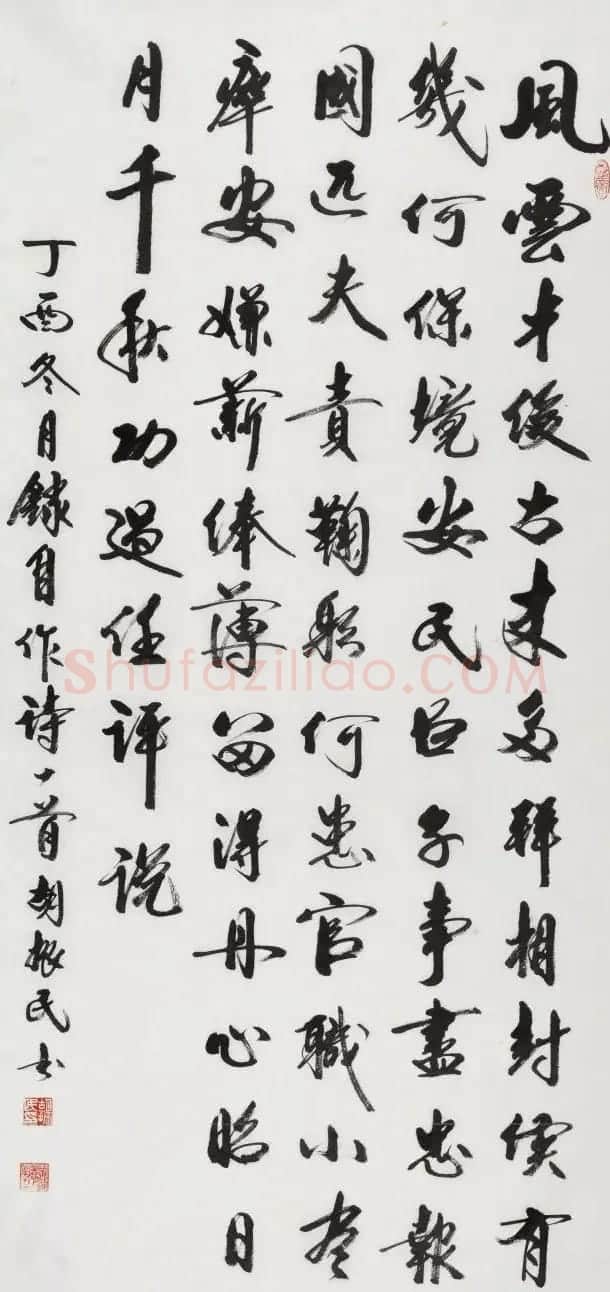 風雲才俊古来多拜相封侯有
幾何保境安民臣子事盡忠報
國匹夫責鞠躬何患官職小尽
瘁安嫌薪俸薄留得丹心昭日
月千秋功過任评说
丁酉冬月録自作诗一首胡根民书
Shufaziliao.COM